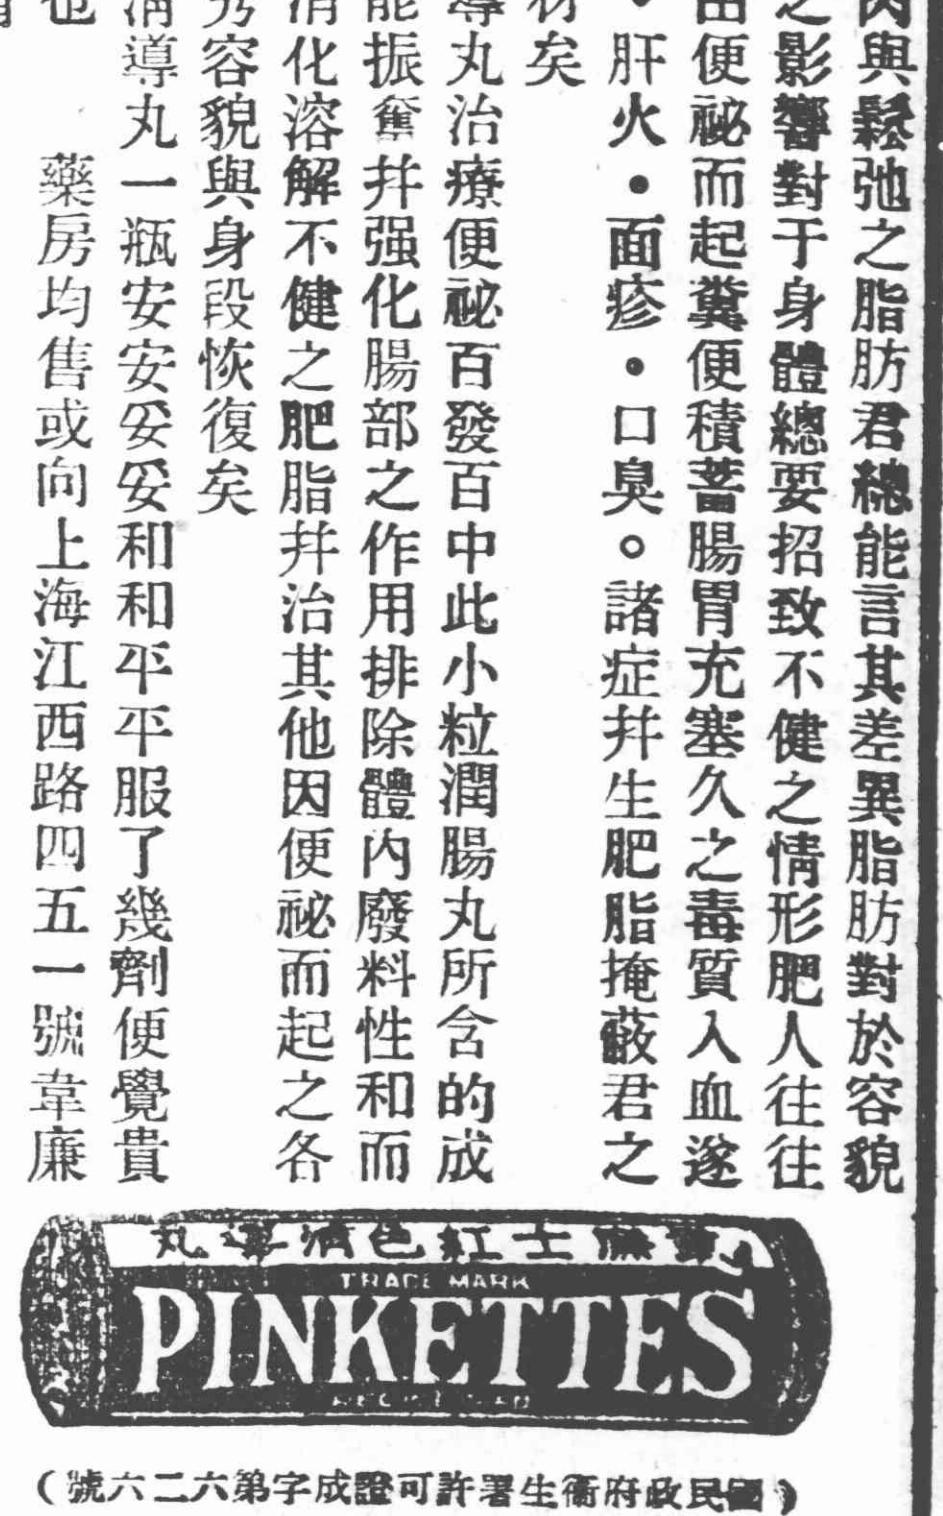 肉與鬆弛之脂肪君總能言其差異脂肪對於容貌
之影響對于身體總要招致不健之情形肥人往往
由便祕而起糞便積蓄腸胃充塞久之毒質入血遂
•肝火•面疹•口臭。諸症幷生肥脂掩蔽君之
材矣
導丸治療便祕百發百中此小粒潤腸丸所含的成
能振奮幷强化腸部之作用排除體內廢料性和而
消化溶解不健之肥脂幷治其他因便祕而起之各
秀容貌與身段恢復矣
清導丸一瓶安安妥妥和和平平服了幾劑便覺貴
也　藥房均售或向上海江西路四五一號韋廉
韋廉士紅色清導丸
TRADE MARK
PINKETTES
(國民政府衞生署許可證成字第六二六號)